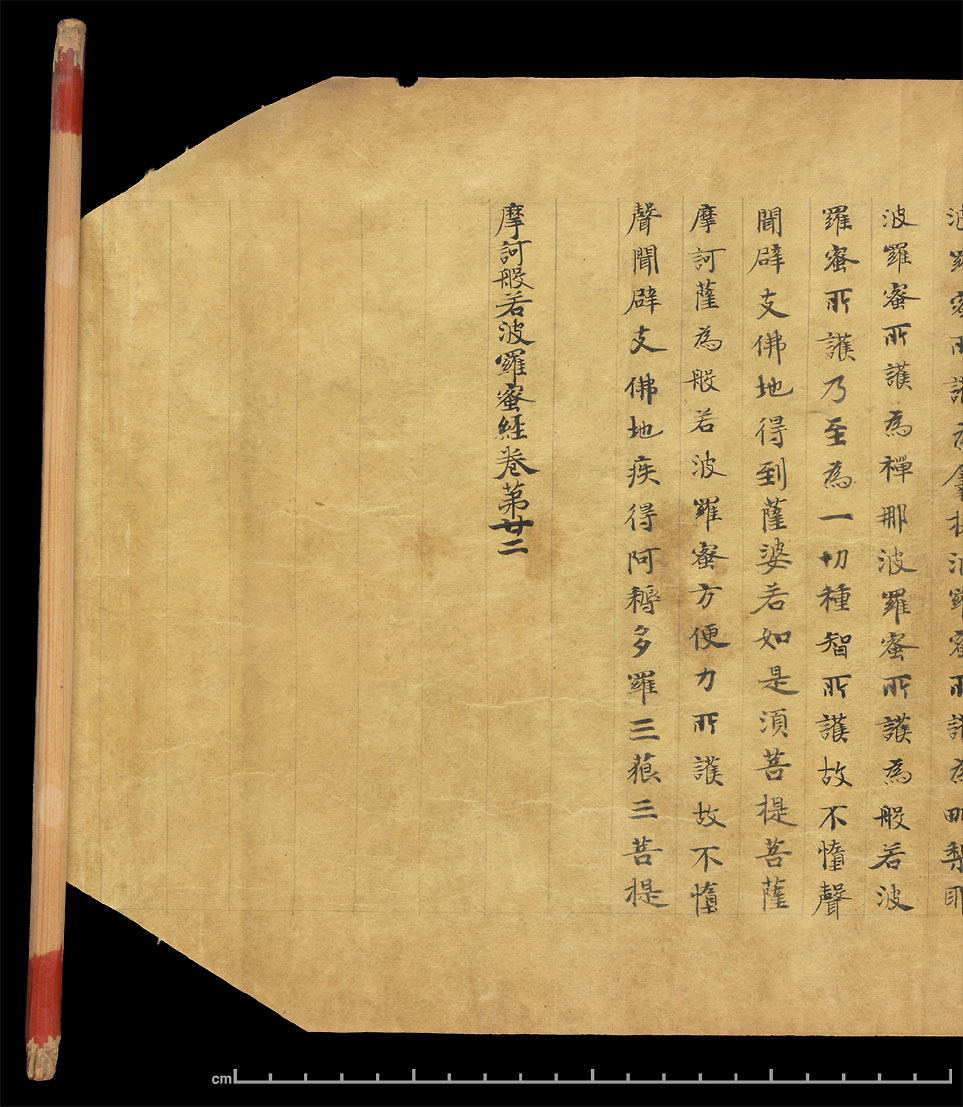 波羅蜜所護為羼提波羅蜜所護為毗梨耶
波羅蜜所護為禪那波羅蜜所護為般若波
羅蜜所護乃至為一切種智所護故不憜聲
聞辟支佛地得到薩婆若如是須菩提菩薩
摩訶薩為般若波羅蜜方便力所護故不憜
聲聞辟支佛地疾得阿耨多羅三藐三菩提
摩訶般若波羅蜜經卷第廿二
cm